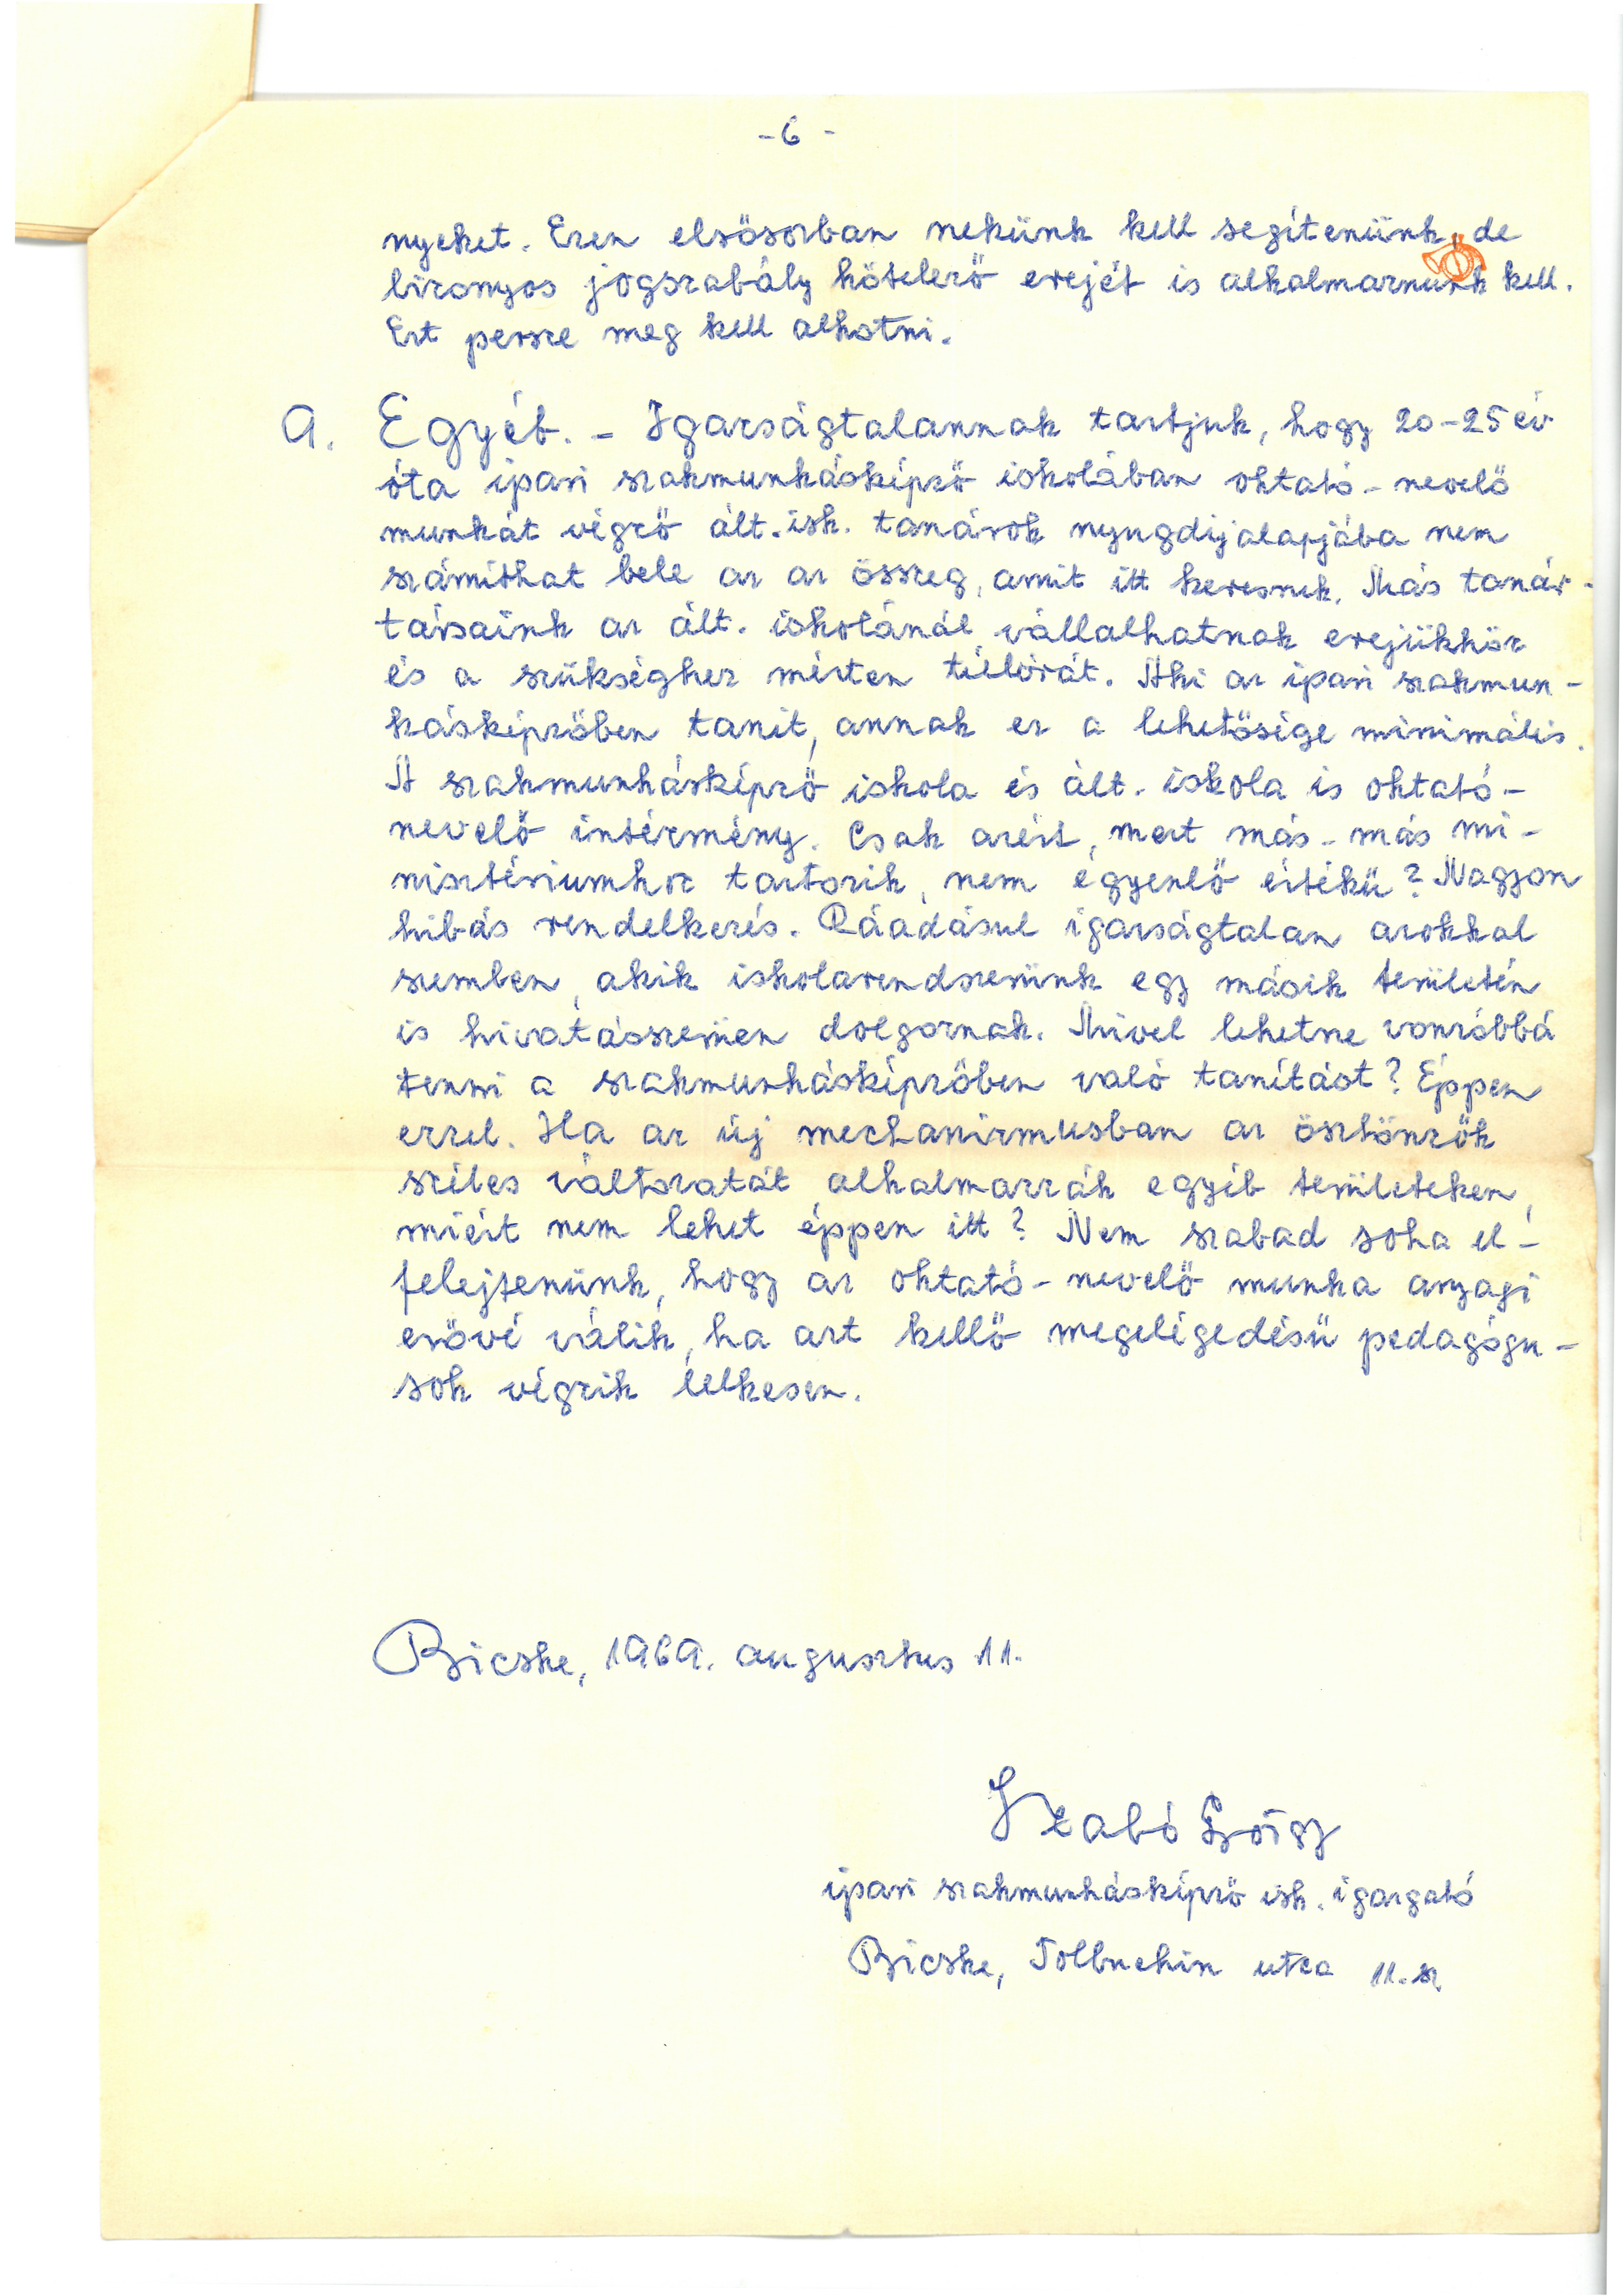 - 6 -
nyeket. Ezen elsősorban nekünk kell segítenünk, de
bizonyos jogszabály kötelező erejét is alkalmaznunk kell.
Ezt persze meg kell alkotni.
9. Egyéb. - Igazságtalannak tartjuk, hogy 20-25 év
óta ipari szakmunkásképző iskolában oktató-nevelő
munkát végző ált. isk. tanárok nyugdíjalapjába nem
számíthat bele az az összeg, amit itt keresnek. Más tanár-
társaink az ált. iskolánál vállalhatnak erejükhöz
és a szükséghez mérten túlórát. Aki az ipari szakmun-
kásképzőben tanít, annak ez a lehetősége minimális.
A szakmunkásképző iskola és ált. iskola is oktató-
nevelő intézmény. Csak azért, mert más-más mi-
nisztériumhoz tartozik, nem egyenlő értékű? Nagyon
hibás rendelkezés. Ráadásul igazságtalan azokkal
szemben, akik iskolarendszerünk egy másik területén
is hivatásszerűen dolgoznak. Mivel lehetne vonzóbbá
tenni a szakmunkásképzőben való tanítást? Éppen
ezzel. Ha az új mechanizmusban az ösztönzők
széles változatát alkalmazzák egyéb területeken,
miért nem lehet éppen itt? Nem szabad soha el-
felejtenünk, hogy az oktató-nevelő munka anyagi
erővé válik, ha azt kellő megelégedésű pedagógu-
sok végzik lelkesen.
Bicske, 1969. augusztus 11.
Szabó György
ipari szakmunkásképző isk. igazgató
Bicske, Tolbuchin utca 11. sz.